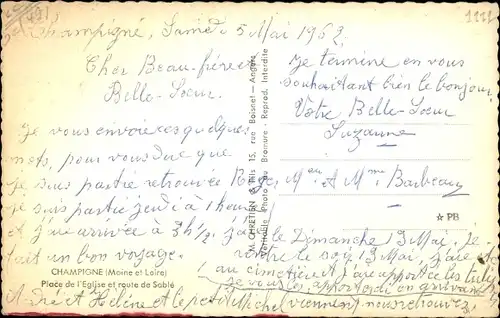 Champigné, Samedi 5 Mai 1962
Cher Beau-frère et
Belle-Sœur.
Je vous envoie ces quelques
mots, pour vous dire que
je suis partie retrouvée
je suis partie jeudi à 1 heure
et j'arrivée à 3h 1/2. j'ai
fait un bon voyage.
CHAMPIGNE (Moine et Loire)
Place de l'Eglise et route de Sablé
André et Hélène et le petit Michel (viennent) nous retrouvez
M. CHRETIEN & Fils 15, rue Boisnet - Angers
Véritable Photo au Bromure - Reprod. Interdite
Je termine en vous
souhaitant bien le bonjour
Votre Belle-Sœur
Suzanne
Mr & Mme Barbeau
★ PB
le Dimanche 13 Mai. Je
rentre le soir 13 Mai, j'irai
au cimetière j'ai apporté les
vous les apporterai en arrivant